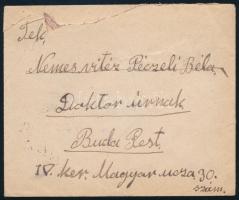 Tek.
Nemes vitéz Péczeli Béla
Doktor úrnak
Buda Pest.
IV. ker. Magyar ucza 30.
szám.